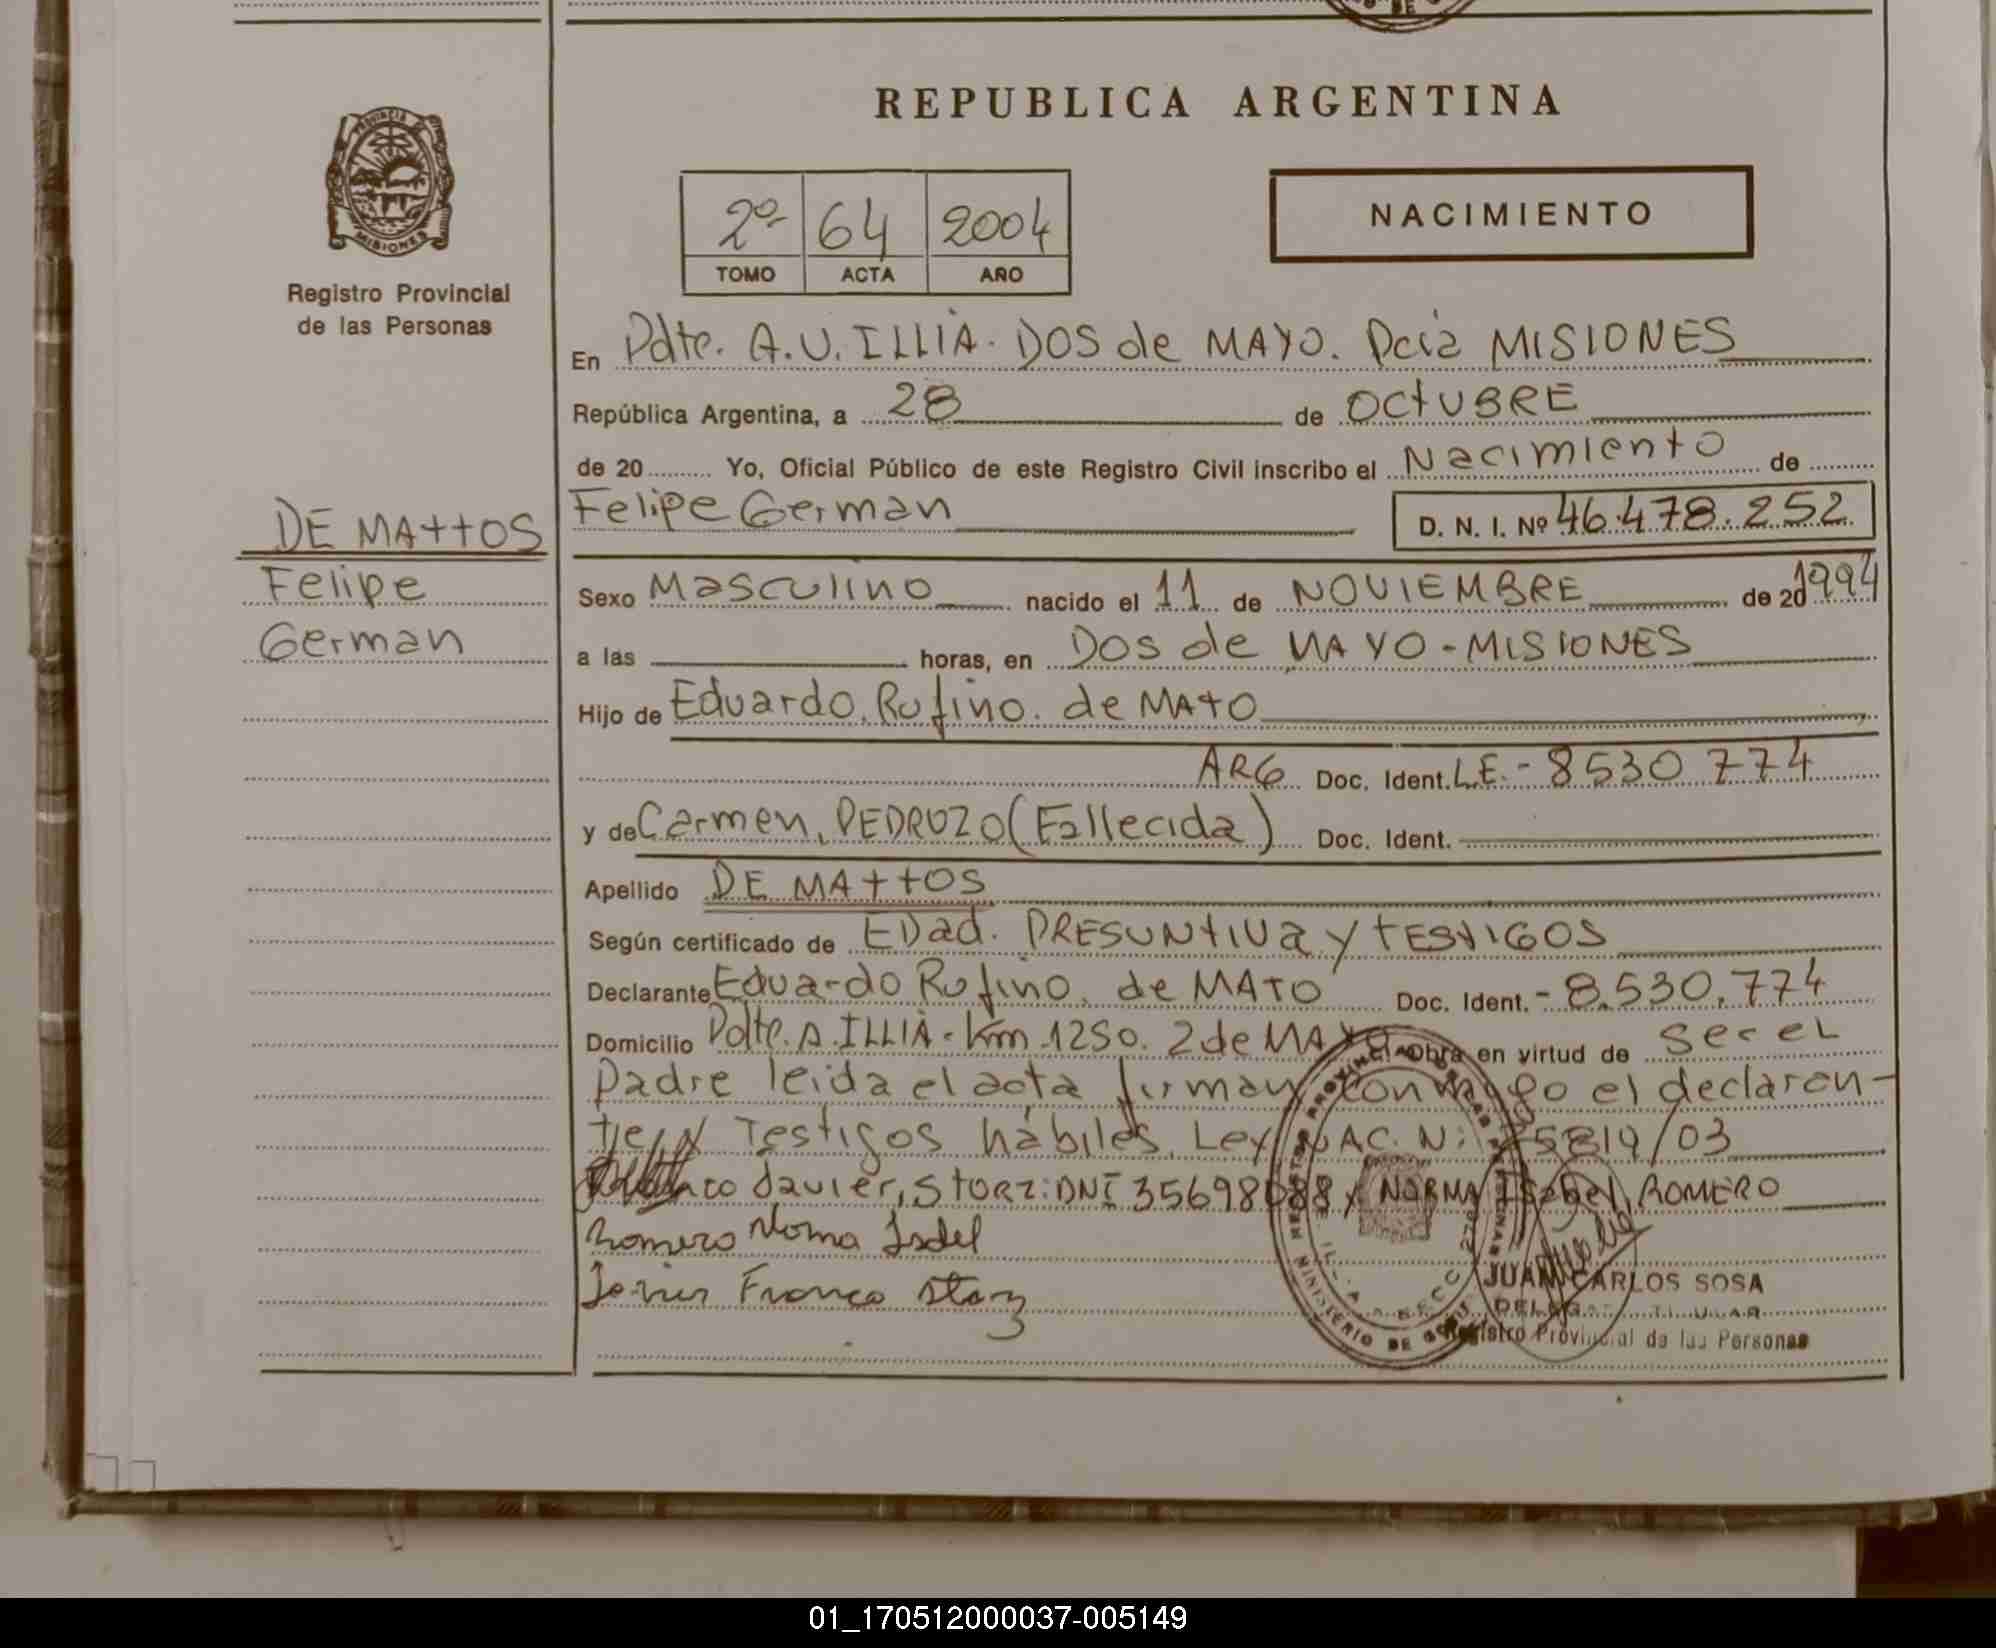 REPUBLICA ARGENTINA
PROVINCIA DE
MISIONES
Registro Provincial
de las Personas
2º 64 2004
TOMO ACTA AÑO
NACIMIENTO
En Pdte. A.U. ILLIA. DOS de MAYO. Pcia MISIONES
República Argentina, a 28 de OCtUBRE
de 20 Yo, Oficial Público de este Registro Civil inscribo el Nacimiento de
DE MAttOS
Felipe
German
Felipe German D. N. I. Nº 46.478.252
Sexo Masculino nacido el 11 de NOVIEMBRE de 20 1994
a las horas, en DOS de MAYO - MISIONES
Hijo de Eduardo Rufino. de MAtO
ARG Doc. Ident. L.E.- 8530774
y de Carmen, PEDROZO (Fallecida) Doc. Ident.
Apellido DE MAttOS
Según certificado de EDad. PRESUNtIVa y tEStIGOS
Declarante Eduardo Rufino. de MATO Doc. Ident. - 8.530.774
Domicilio Pdte. A. ILLIA - Km 1250. 2 de MAYO Obra en virtud de ser eL
Padre leida el acta firman conmigo el declaran-
te y Testigos hábiles. Ley NAC. N: 25819/03
Javier, StORZ: DNI 35698088 y NORMA Isabel, ROMERO
Romero Norma Isabel
Javier Franco Storz
JUAN CARLOS SOSA
DELEGADO TITULAR
Registro Provincial de las Personas
01_170512000037-005149